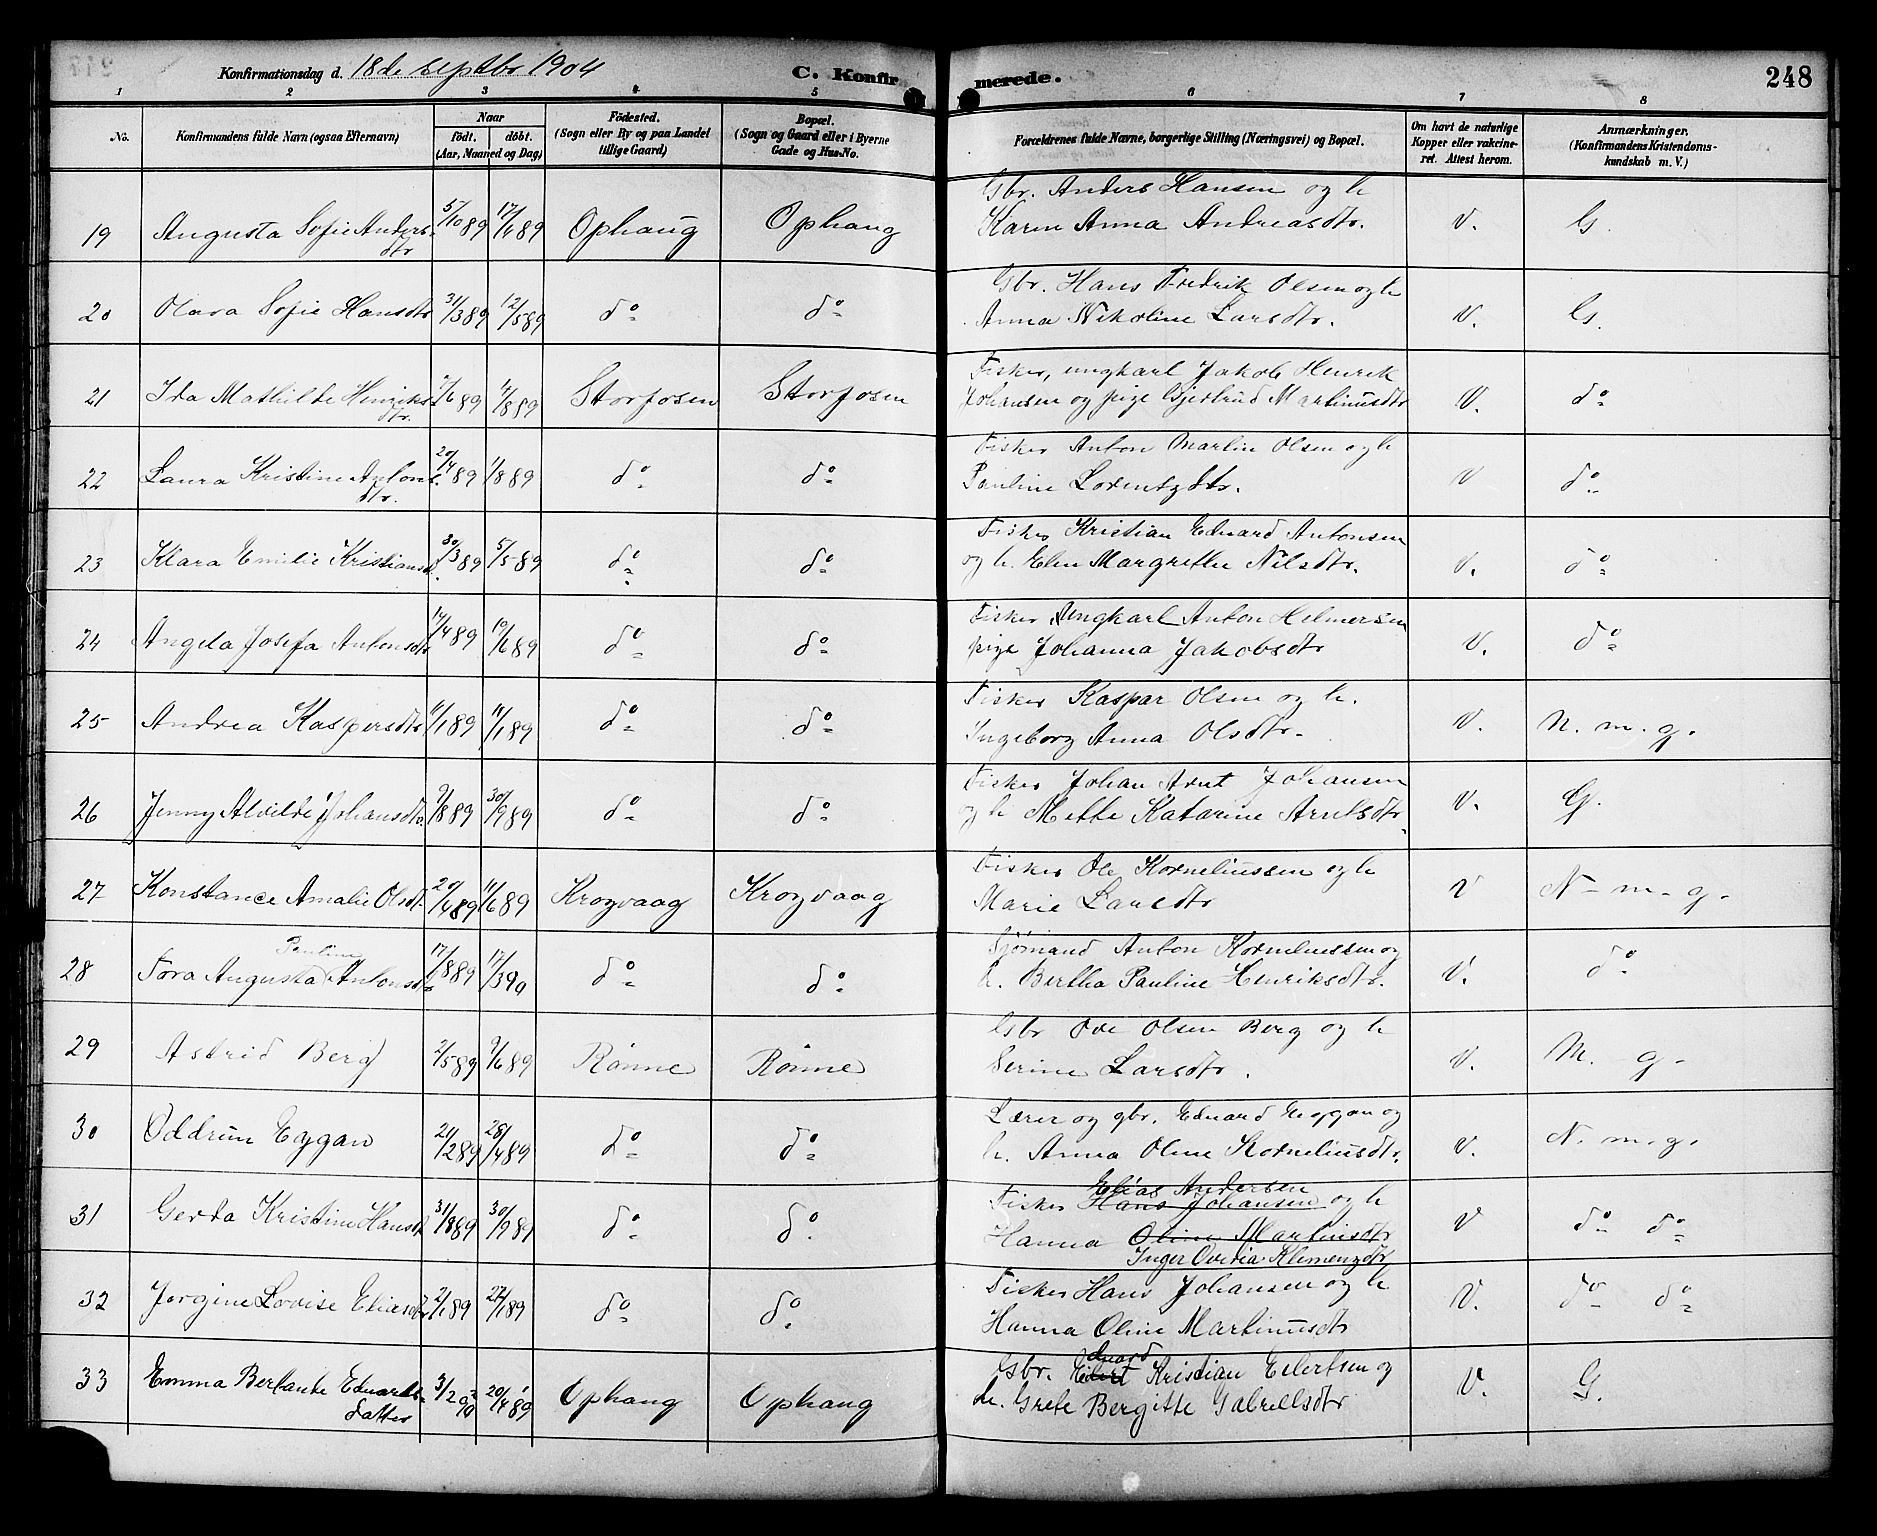 Konfirmationsdag d. 18de septbr 1904 C. Konfirmerede. 248
1 2 3 4 5 6 7 8
No. Konfirmandens fulde Navn (ogsaa Efternavn) Naar födt. döbt. (Aar, Maaned og Dag) Födested. (Sogn eller By og paa Landet tillige Gaard) Bopæl. (Sogn og Gaard eller i Byerne Gade og Hus-No. Forældrenes fulde Navne, borgerlige Stilling (Næringsvei) og Bopæl. Om havt de naturlige Kopper eller vakcineret. Attest herom. Anmærkninger. (Konfirmandens Kristendomskundskab m. V.)
19 Augusta Sofie Andersdtr 5/10 89 17/6 89 Ophaug Ophaug Gbr. Anders Hansen og h Karen Anna Andreasdtr. V. G.
20 Olava Sofie Hansdtr 31/3 89 12/5 89 do do Gbr. Hans Fredrik Olsen og h Anna Nikoline Larsdtr. V. G.
21 Ida Mathilde Henriksdtr. 7/6 89 4/8 89 Storfosen Storfosen Fisker, ungkarl Jakob Henrik Johansen og pige Gjertrud Martinusdtr V. do
22 Laura Kristine Antonsdtr. 20/4 89 1/8 89 do do Fisker Anton Martin Olsen og h Pauline Lorentzdtr. V do
23 Klara Emilie Kristiansd. 30/3 89 5/5 89 do do Fisker Kristian Eduard Antonsen og h. Elen Margrethe Nilsdtr. V. do
24 Angela Josefa Antonsdtr 14/4 89 10/6 89 do do Fisker, Ungkarl Anton Helmersen pige Johanna Jakobsdtr V. do
25 Andrea Kaspersdtr 11/1 89 11/1 89 do do Fisker Kaspar Olsen og h. Ingeborg Anna Olsdtr. V. N. m. g.
26 Jenny Alvilde Johansdtr 9/8 89 30/9 89 do do Fisker Johan Arnt Johansen og h Mette Katarine Arntsdtr. V. G.
27 Konstance Amalie Olsdt. 20/4 89 11/6 89 Krogvaag Krogvaag Fisker Ole Korneliussen og h Marie Larsdtr V N. m. g.
28 Tora Augusta Pauline Antonsdt 17/8 89 17/3 90 do do Sjømand Anton Korneliussen og h. Bertha Pauline Henriksdtr. V. do
29 Astrid Berg 2/5 89 9/6 89 Rönne Rönne Gbr Ove Olsen Berg og h Serine Larsdtr. V. M. g.
30 Oddrun Eggan 21/2 89 28/4 89 do do Lærer og gbr. Eduard Eggan og h. Anna Oline Korneliusdtr. V. N. m. g.
31 Gerda Kristine Hansdt 31/8 89 30/9 89 do do Fisker Hans Johansen Elias Andersen og h Hanna Oline Martinsdtr Inger Ovedia Klemenzdtr V do do
32 Jorgine Lovise Eliasdtr 2/1 89 27/1 89 do do Fisker Hans Johansen og h Hanna Oline Martinusdtr V. do do
33 Emma Berlante Eduardsdatter 20/4 89 Ophaug Ophaug Gbr. Eduard Kristian Eilertsen og h. Grete Bergitte Gabrellsdtr V. G.